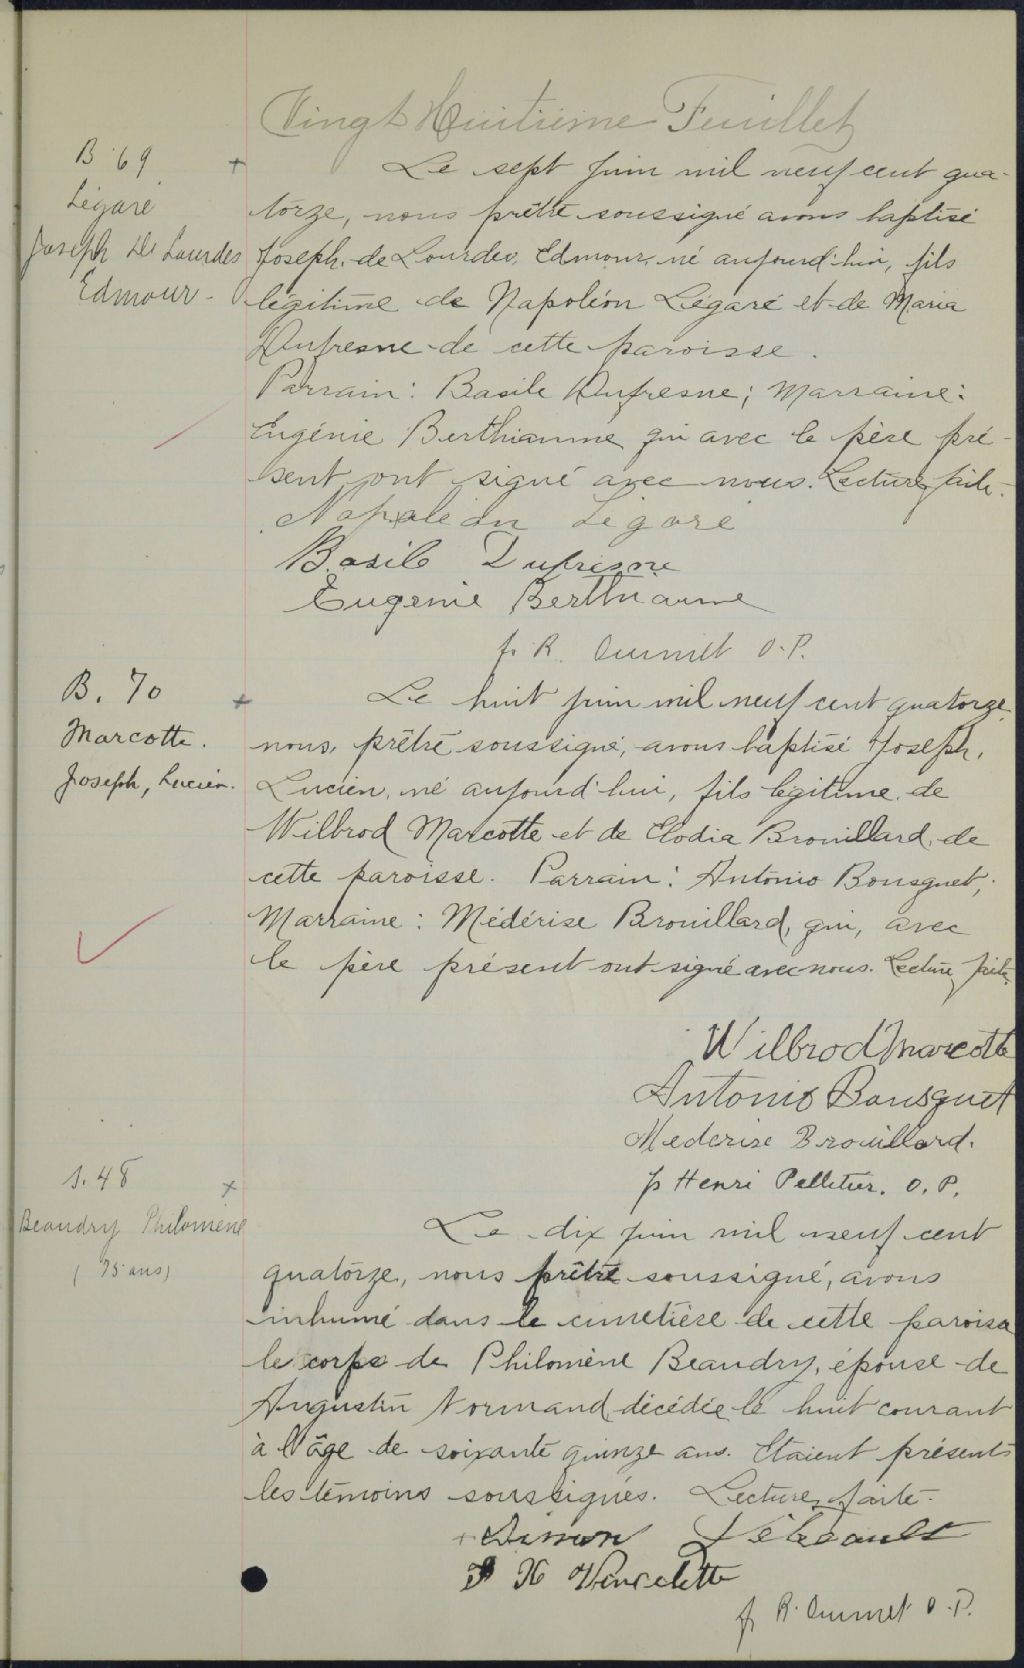 Vingt Huitième Feuillet
B 69
Légaré
Joseph De Lourdes
Edmour.
Le sept juin mil neuf cent qua-
torze, nous prêtre soussigné avons baptisé
Joseph. de Lourdes, Edmour, né aujourd'hui, fils
légitime de Napoléon Légaré et de Maria
Dufresne de cette paroisse.
Parrain: Basile Dufresne; Marraine:
Eugénie Berthiaume qui avec le père pré-
sent, ont signé avec nous. Lecture faite.
Napoleon Legaré
Basile Dufresne
Eugenie Berthiaume
f. R. Ouimet O.P.
B. 70
Marcotte.
Joseph, Lucien.
Le huit juin mil neuf cent quatorze,
nous, prêtre soussigné, avons baptisé Joseph,
Lucien, né aujourd'hui, fils légitime de
Wilbrod Marcotte et de Elodia Brouillard, de
cette paroisse. Parrain: Antonio Bousquet;
Marraine: Médérise Brouillard, qui, avec
le père présent ont signé avec nous. Lecture faite.
Wilbrod Marcotte
Antonio Bousquet
Mederise Brouillard.
fr Henri Pelletier. O.P.
S. 48
Beaudry Philomène
(75 ans)
Le dix juin mil neuf cent
quatorze, nous prêtre soussigné, avons
inhumé dans le cimetière de cette paroisse
le corps de Philomène Beaudry, épouse de
Augustin Normand, décédée le huit courant
à l'âge de soixante quinze ans. Etaient présents
les témoins soussignés. Lecture faite.
f. R. Ouimet O.P.